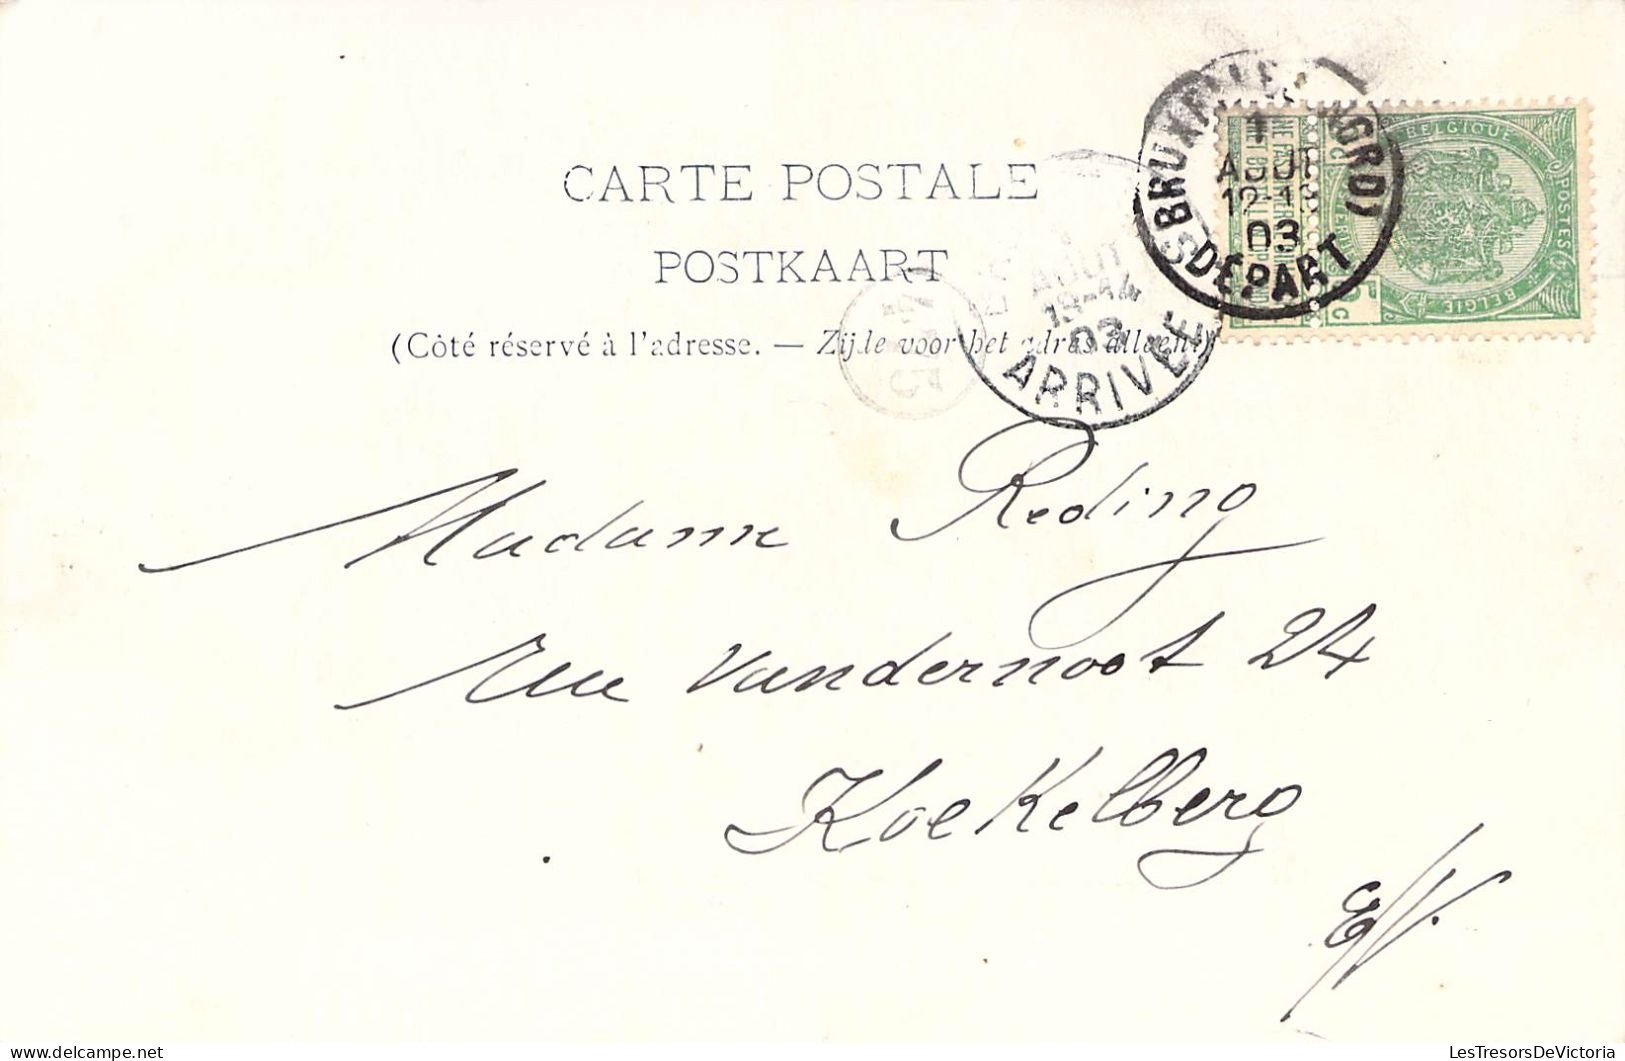 CARTE POSTALE
POSTKAART
(Côté réservé à l'adresse. — Zijde voor het adres alleen)
BRUXELLES (NORD)
1
AOUT
12-13
03
DÉPART
AOUT
03
ARRIVÉE
BELGIQUE
POSTES
BELGIE
5
c
Madame Reding
Rue Vandernoot 24
Koekelberg
E/V.
LesTresorsDeVictoria
LesTresorsDeVictoria